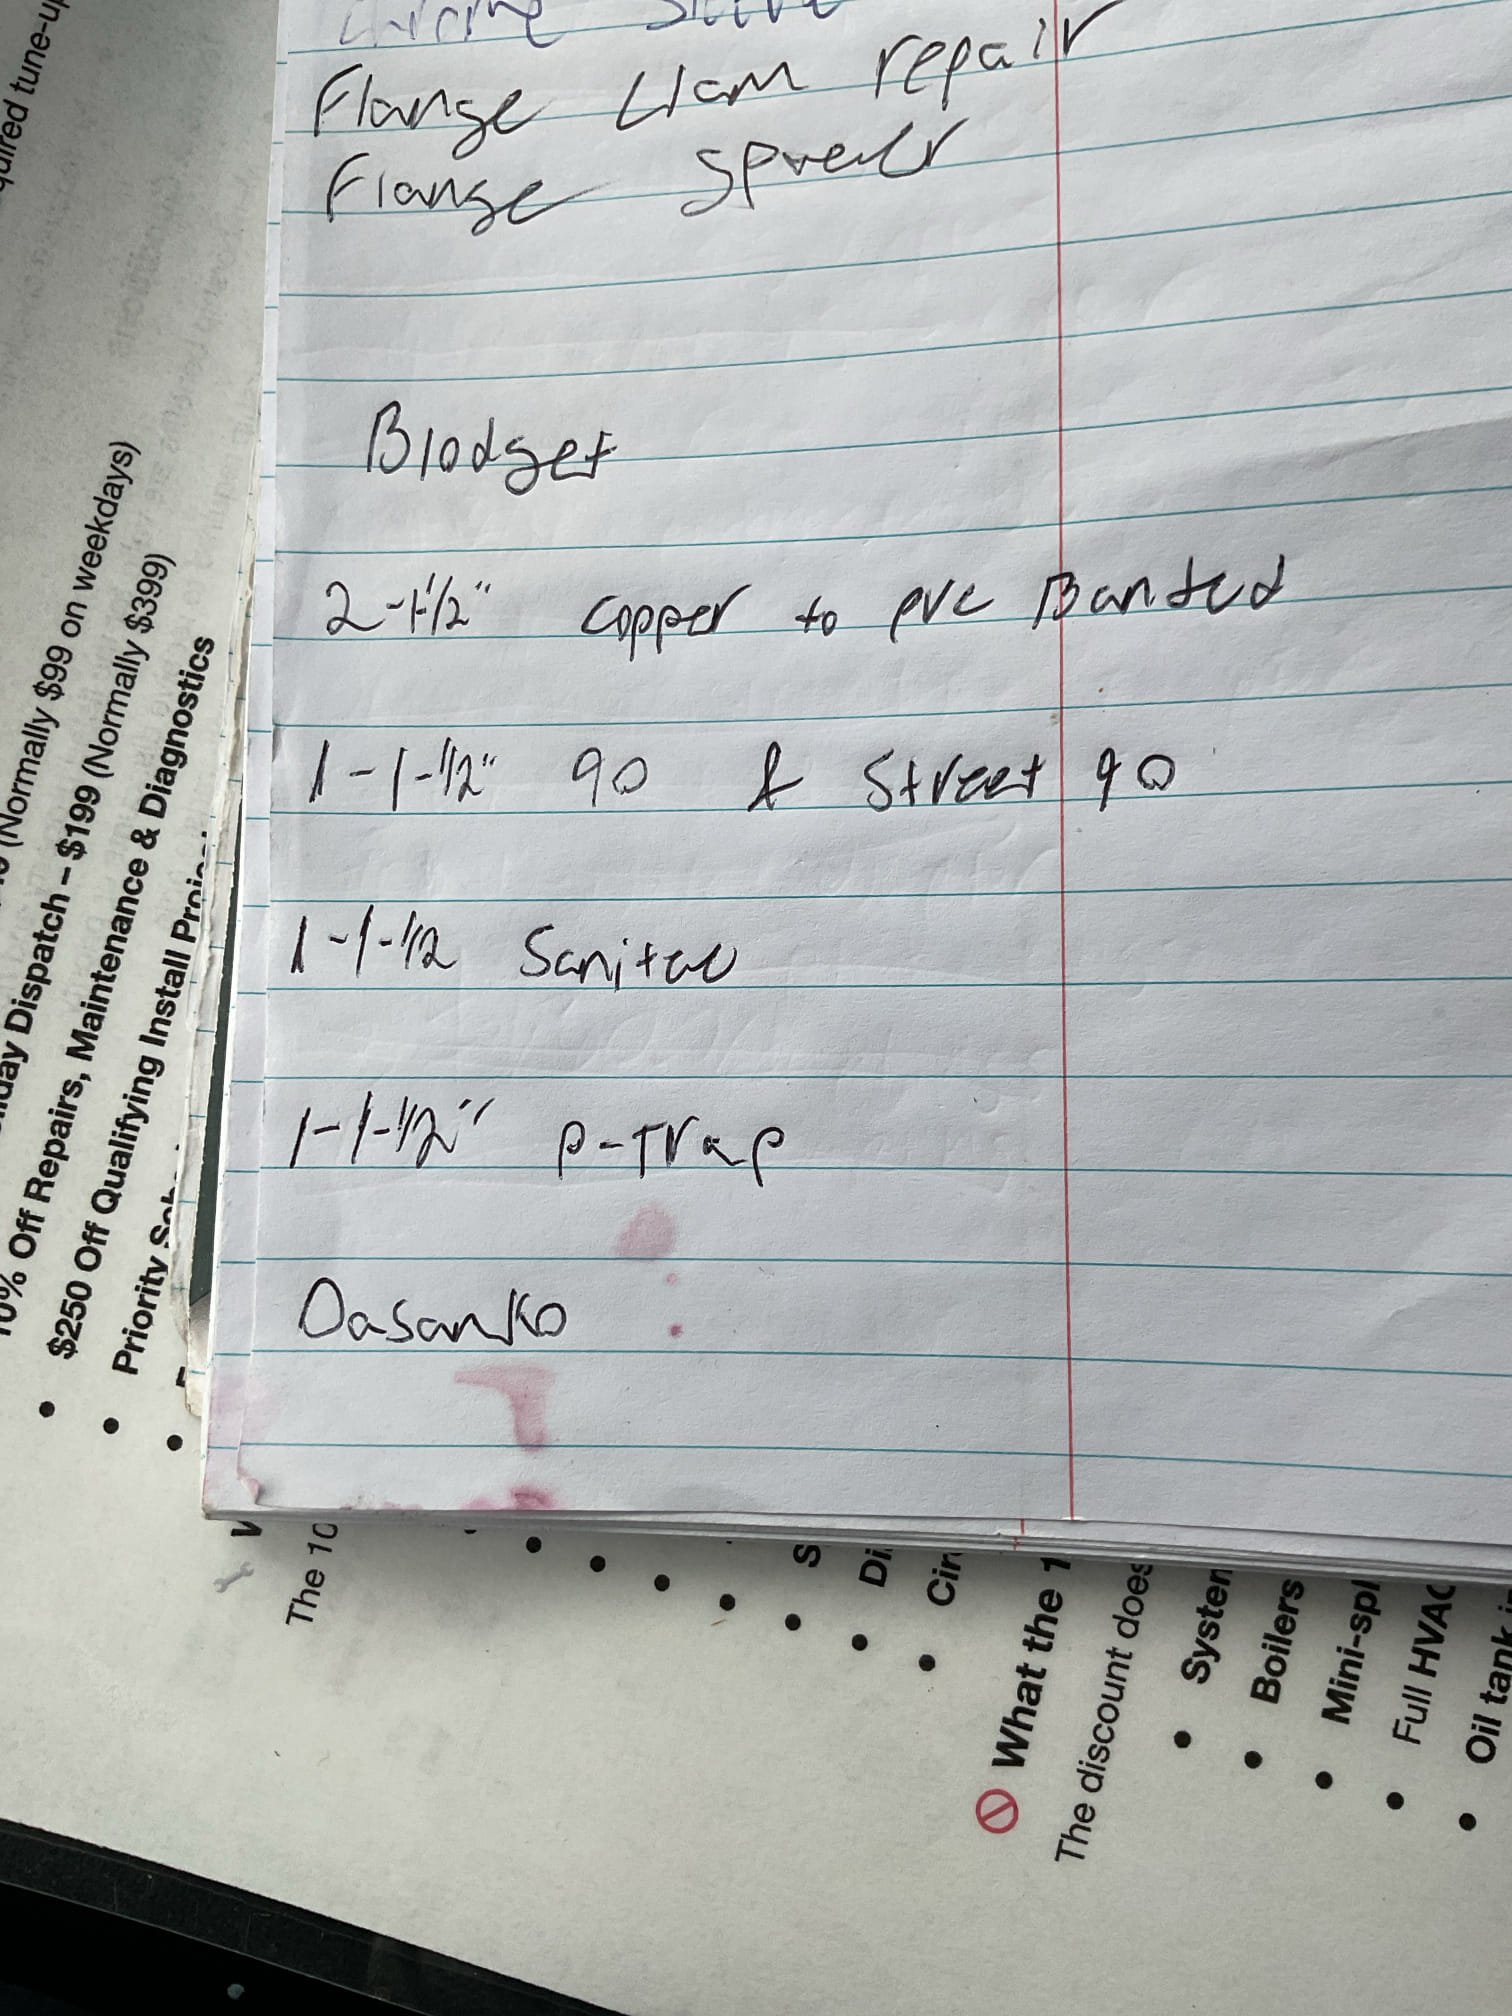 Flange Clam repair
Flange
Blodget
2-1-1/2" copper to pvc Banded
1-1-1/2" 90 & Street 90
1-1-1/2 Sanitee
1-1-1/2" P-Trap
Dasanko
(Normally $99 on weekdays)
Dispatch – $199 (Normally $399)
10% Off Repairs, Maintenance & Diagnostics
• $250 Off Qualifying Install
• Priority
The 10
What the
The discount
• Boilers
• Full HVAC
• Oil tank